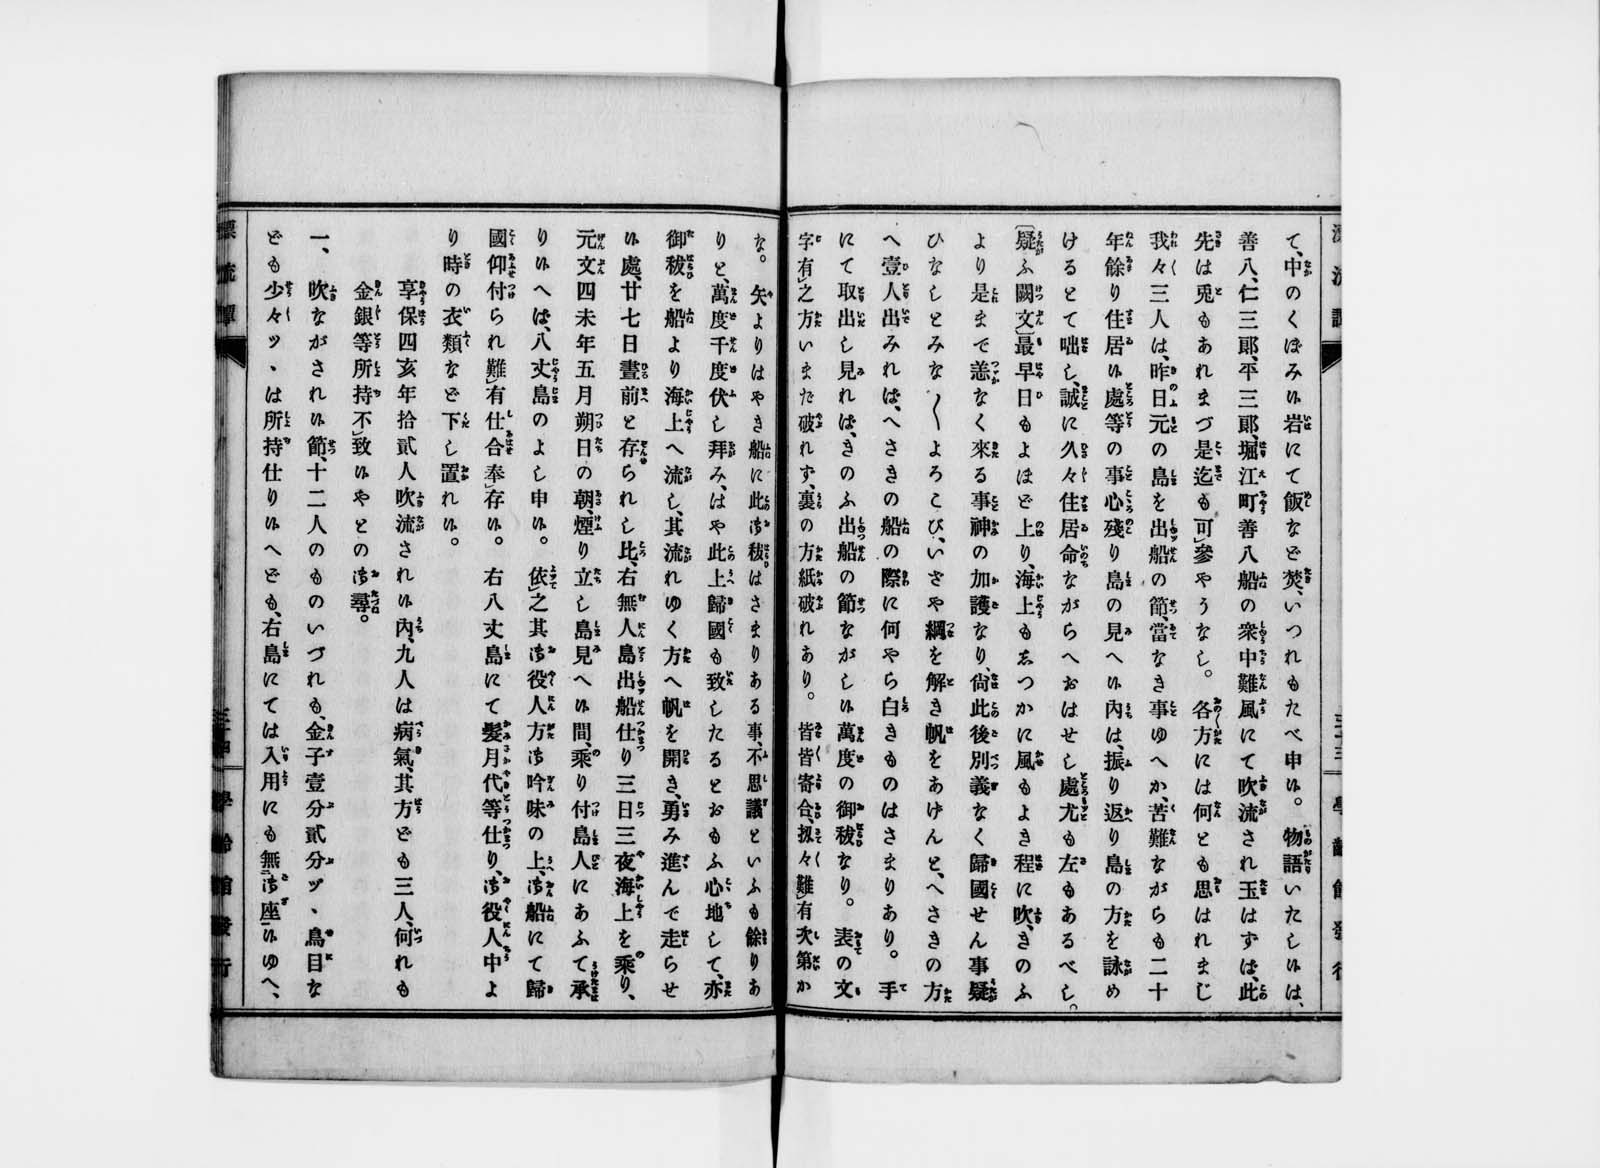 漂流譚
三十三
學齡館發行
て、中のくぼみは岩にて飯など焚、いつれもたべ申候。物語いたし候は、
善八、仁三郎、平三郎、堀江町善八船の衆中難風にて吹流され玉はずは、此
先は兎もあれまづ是迄も可參やうなし。各方には何とも思はれまじ
我々三人は、昨日元の島を出船の節、當なき事ゆへか、苦難ながらも二十
年餘り住居候處等の事心殘り島の見へ候內は、振り返り島の方を詠め
けるとて咄し、誠に久々住居命ながらへおはせし處尤も左もあるべし。
〔疑ふ闕文〕最早日もよほど上り、海上もゑつかに風もよき程に吹、きのふ
より是まで恙なく來る事神の加護なり、尙此後別義なく歸國せん事疑
ひなしとみな〳〵よろこび、いさや綱を解き帆をあげんと、へさきの方
へ壹人出みれば、へさきの船の際に何やら白きものはさまりあり。手
にて取出し見れば、きのふ出船の節ながし候萬度の御秡なり。表の文
字有之方いまだ破れず、裏の方紙破れあり。皆皆寄合、扨々難有次第か
な。矢よりはやき船に此御秡はさまりある事、不思議といふも餘りあ
りと、萬度千度伏し拜み、はや此上歸國も致したるとおもふ心地して、亦
御秡を船より海上へ流し、其流れゆく方へ帆を開き、勇み進んで走らせ
候處、廿七日晝前と存られし比、右無人島出船仕り三日三夜海上を乘り、
元文四未年五月朔日の朝、煙り立し島見へ候間、乘り付島人にあふて承
り候へば、八丈島のよし申候。依之其御役人方御吟味の上、御船にて歸
國仰付られ難有仕合奉存候。右八丈島にて髮月代等仕り、御役人中よ
り時の衣類など下し置れ候。
享保四亥年拾貳人吹流され候內、九人は病氣、其方ども三人、何れも
金銀等所持不致候やとの御尋。
一、吹ながされ候節、十二人のものいづれも、金子壹分貳分ヅヽ、鳥目な
ども少々ッヽは所持仕り候へども、右島にては入用にも無御座候ゆへ、
漂流譚
三十四
學齡館發行